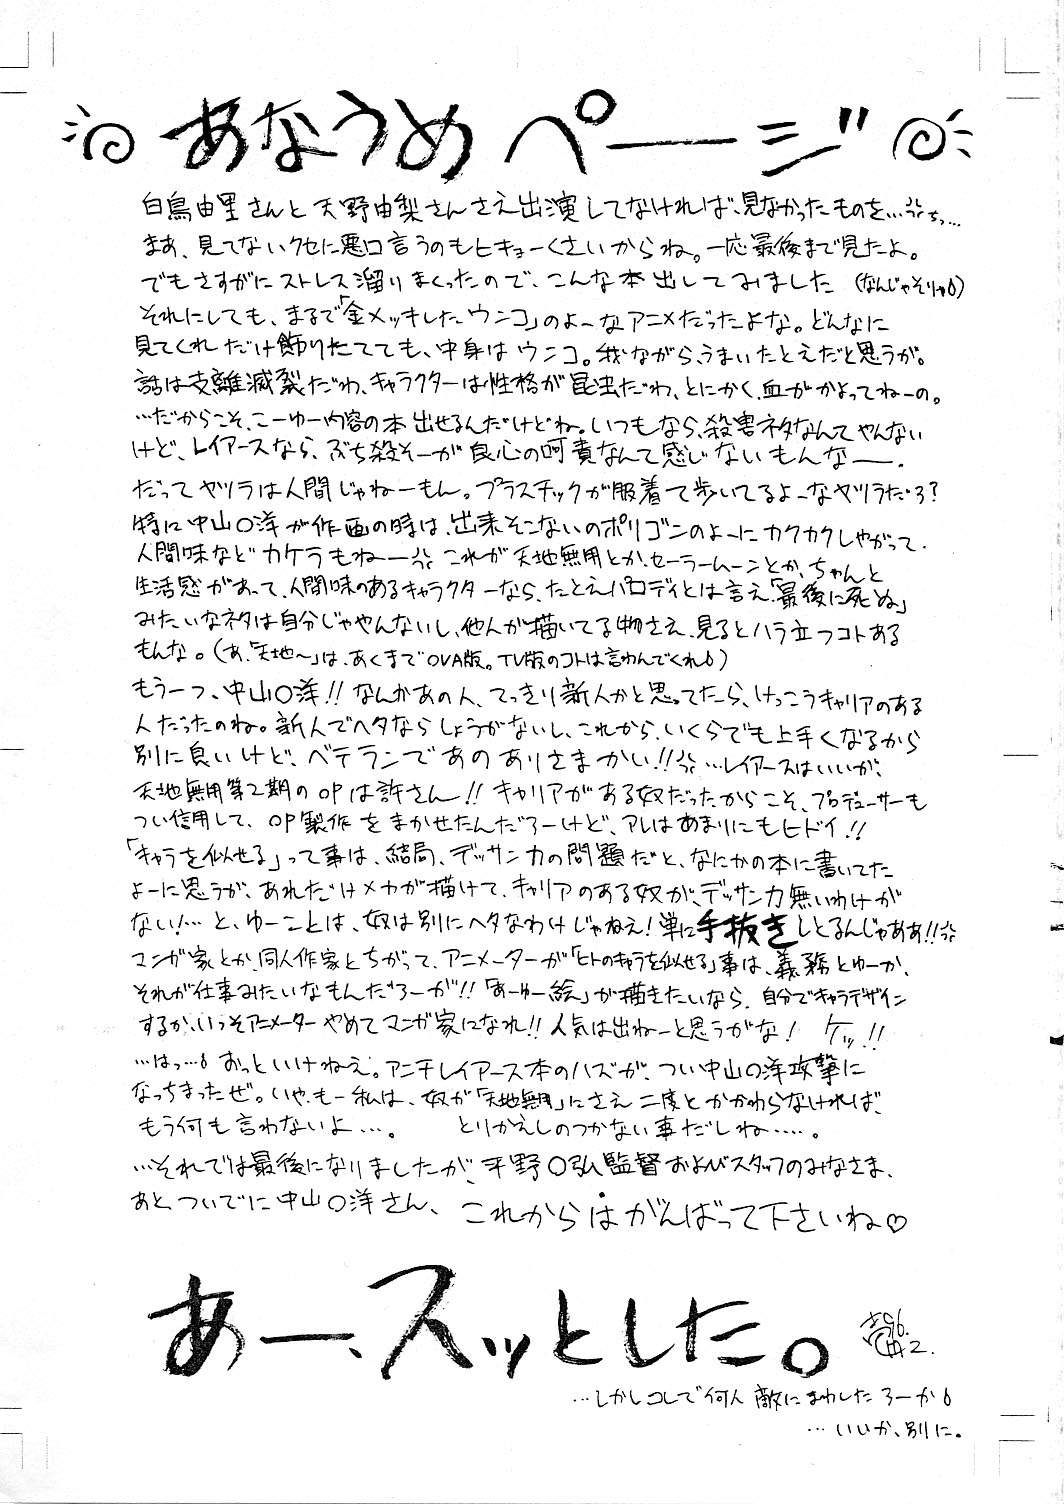 あなうめページ
白鳥由里さんと天野由梨さんさえ出演してなければ、見なかったものを…ちっ…
まぁ、見てないクセに悪口言うのもヒキョーくさいからね。一応最後まで見たよ。
でもさすがにストレス溜りまくったので、こんな本出してみました(なんじゃそりゃ)
それにしても、まるで「金メッキしたウンコ」のよーなアニメだったよな。どんなに
見てくれだけ飾りたてても、中身はウンコ。我ながら、うまいたとえだと思うが。
話は支離滅裂だわ、キャラクターは性格が昆虫だわ、とにかく、血がかよってねーの。
…だからこそ、こーゆー内容の本出せるんだけどね。いつもなら、殺害ネタなんてやんない
けど、レイアースなら、ぶち殺そーが良心の呵責なんて感じないもんなー.
だってヤツラは人間じゃねーもん。プラスチックが服着て歩いてるよーなヤツラだろ?
特に中山〇洋が作画の時は、出来そこないのポリゴンのよーにカクカクしやがって、
人間味などカケラもねー これが天地無用とか、セーラームーンとか、ちゃんと
生活感があって、人間味のあるキャラクターなら、たとえパロディとは言え、「最後に死ぬ」
みたいなネタは自分じゃやんないし、他人が描いてる物さえ、見るとハラ立つコトある
もんな。(あ、「天地〜」は、あくまでOVA版。TV版のコトは言わんでくれ)
もう一つ、中山〇洋!! なんかあの人、てっきり新人かと思ってたら、けっこうキャリアのある
人だったのね。新人でヘタならしょうがないし、これから、いくらでも上手くなるから
別に良いけど、ベテランであのありさまかい!! …レイアースはいいが、
天地無用第2期のOPは許さん!! キャリアがある奴だったからこそ、プロデューサーも
つい信用して、OP製作をまかせたんだろーけど、アレはあまりにもヒドイ!!
「キャラを似せる」って事は、結局、デッサン力の問題だと、なにかの本に書いてた
よーに思うが、あれだけメカが描けて、キャリアのある奴が、デッサン力無いわけが
ない!… と、ゆーことは、奴は別にヘタなわけじゃねえ! 単に手抜きしとるんじゃあぁ!!
マンガ家とか、同人作家とちがって、アニメーターが「ヒトのキャラを似せる」事は、義務とゆーか、
それが仕事みたいなもんだろーが!! 「あーゆー絵」が描きたいなら、自分でキャラデザイン
するか、いっそアニメーターやめてマンガ家になれ!! 人気は出ねーと思うがな! ケッ!!
…はっ… おっといけねえ。アンチレイアース本のハズが、つい中山〇洋攻撃に
なっちまったぜ。いや、もー私は、奴が「天地無用」にさえ二度とかかわらなければ、
もう何も言わないよ…。 とりかえしのつかない事だしね…..。
…それでは最後になりましたが、平野〇弘監督およびスタッフのみなさま、
あと、ついでに中山〇洋さん、これからはがんばって下さいね♡
あー、スッとした。
'96.
2.
…しかしコレで何人敵にまわしたろーか
…いいか、別に。